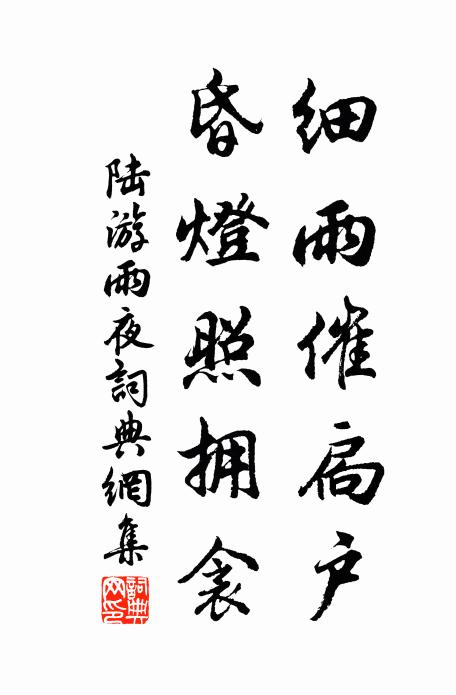 细雨催扃户
昏燈照拥衾
陆游雨夜詞典網集
詞典网印